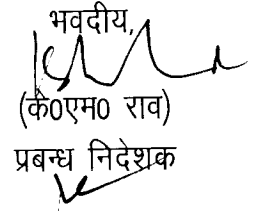 भवदीय,
(के0एम0 राव)
प्रबन्ध निदेशक